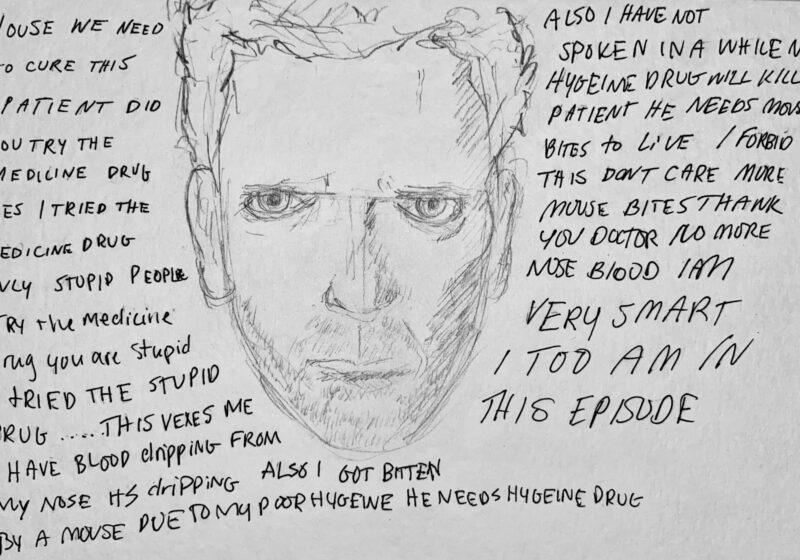 OUSE WE NEED
TO CURE THIS
PATIENT DID
OU TRY THE
MEDICINE DRUG
ES I TRIED THE
EDICINE DRUG
NLY STUPID PEOPLE
TRY the MEDICINE
rug you are stupid
I TRIED THE STUPID
DRUG ..... THIS VEXES ME
I HAVE BLOOD dripping FROM
MY NOSE ITS dripping ALSO I GOT BITTEN
BY A MOUSE DUE TO MY POOR HYGEINE HE NEEDS HYGEINE DRUG
ALSO I HAVE NOT
SPOKEN IN A WHILE N
HYGEINE DRUG WILL KILL
PATIENT HE NEEDS MOUS
BITES to LiVE I FORBID
THIS DONT CARE MORE
MOUSE BITES THANK
YOU DOCTOR NO MORE
NOSE BLOOD I AM
VERY SMART
I TOO AM IN
THIS EPISODE